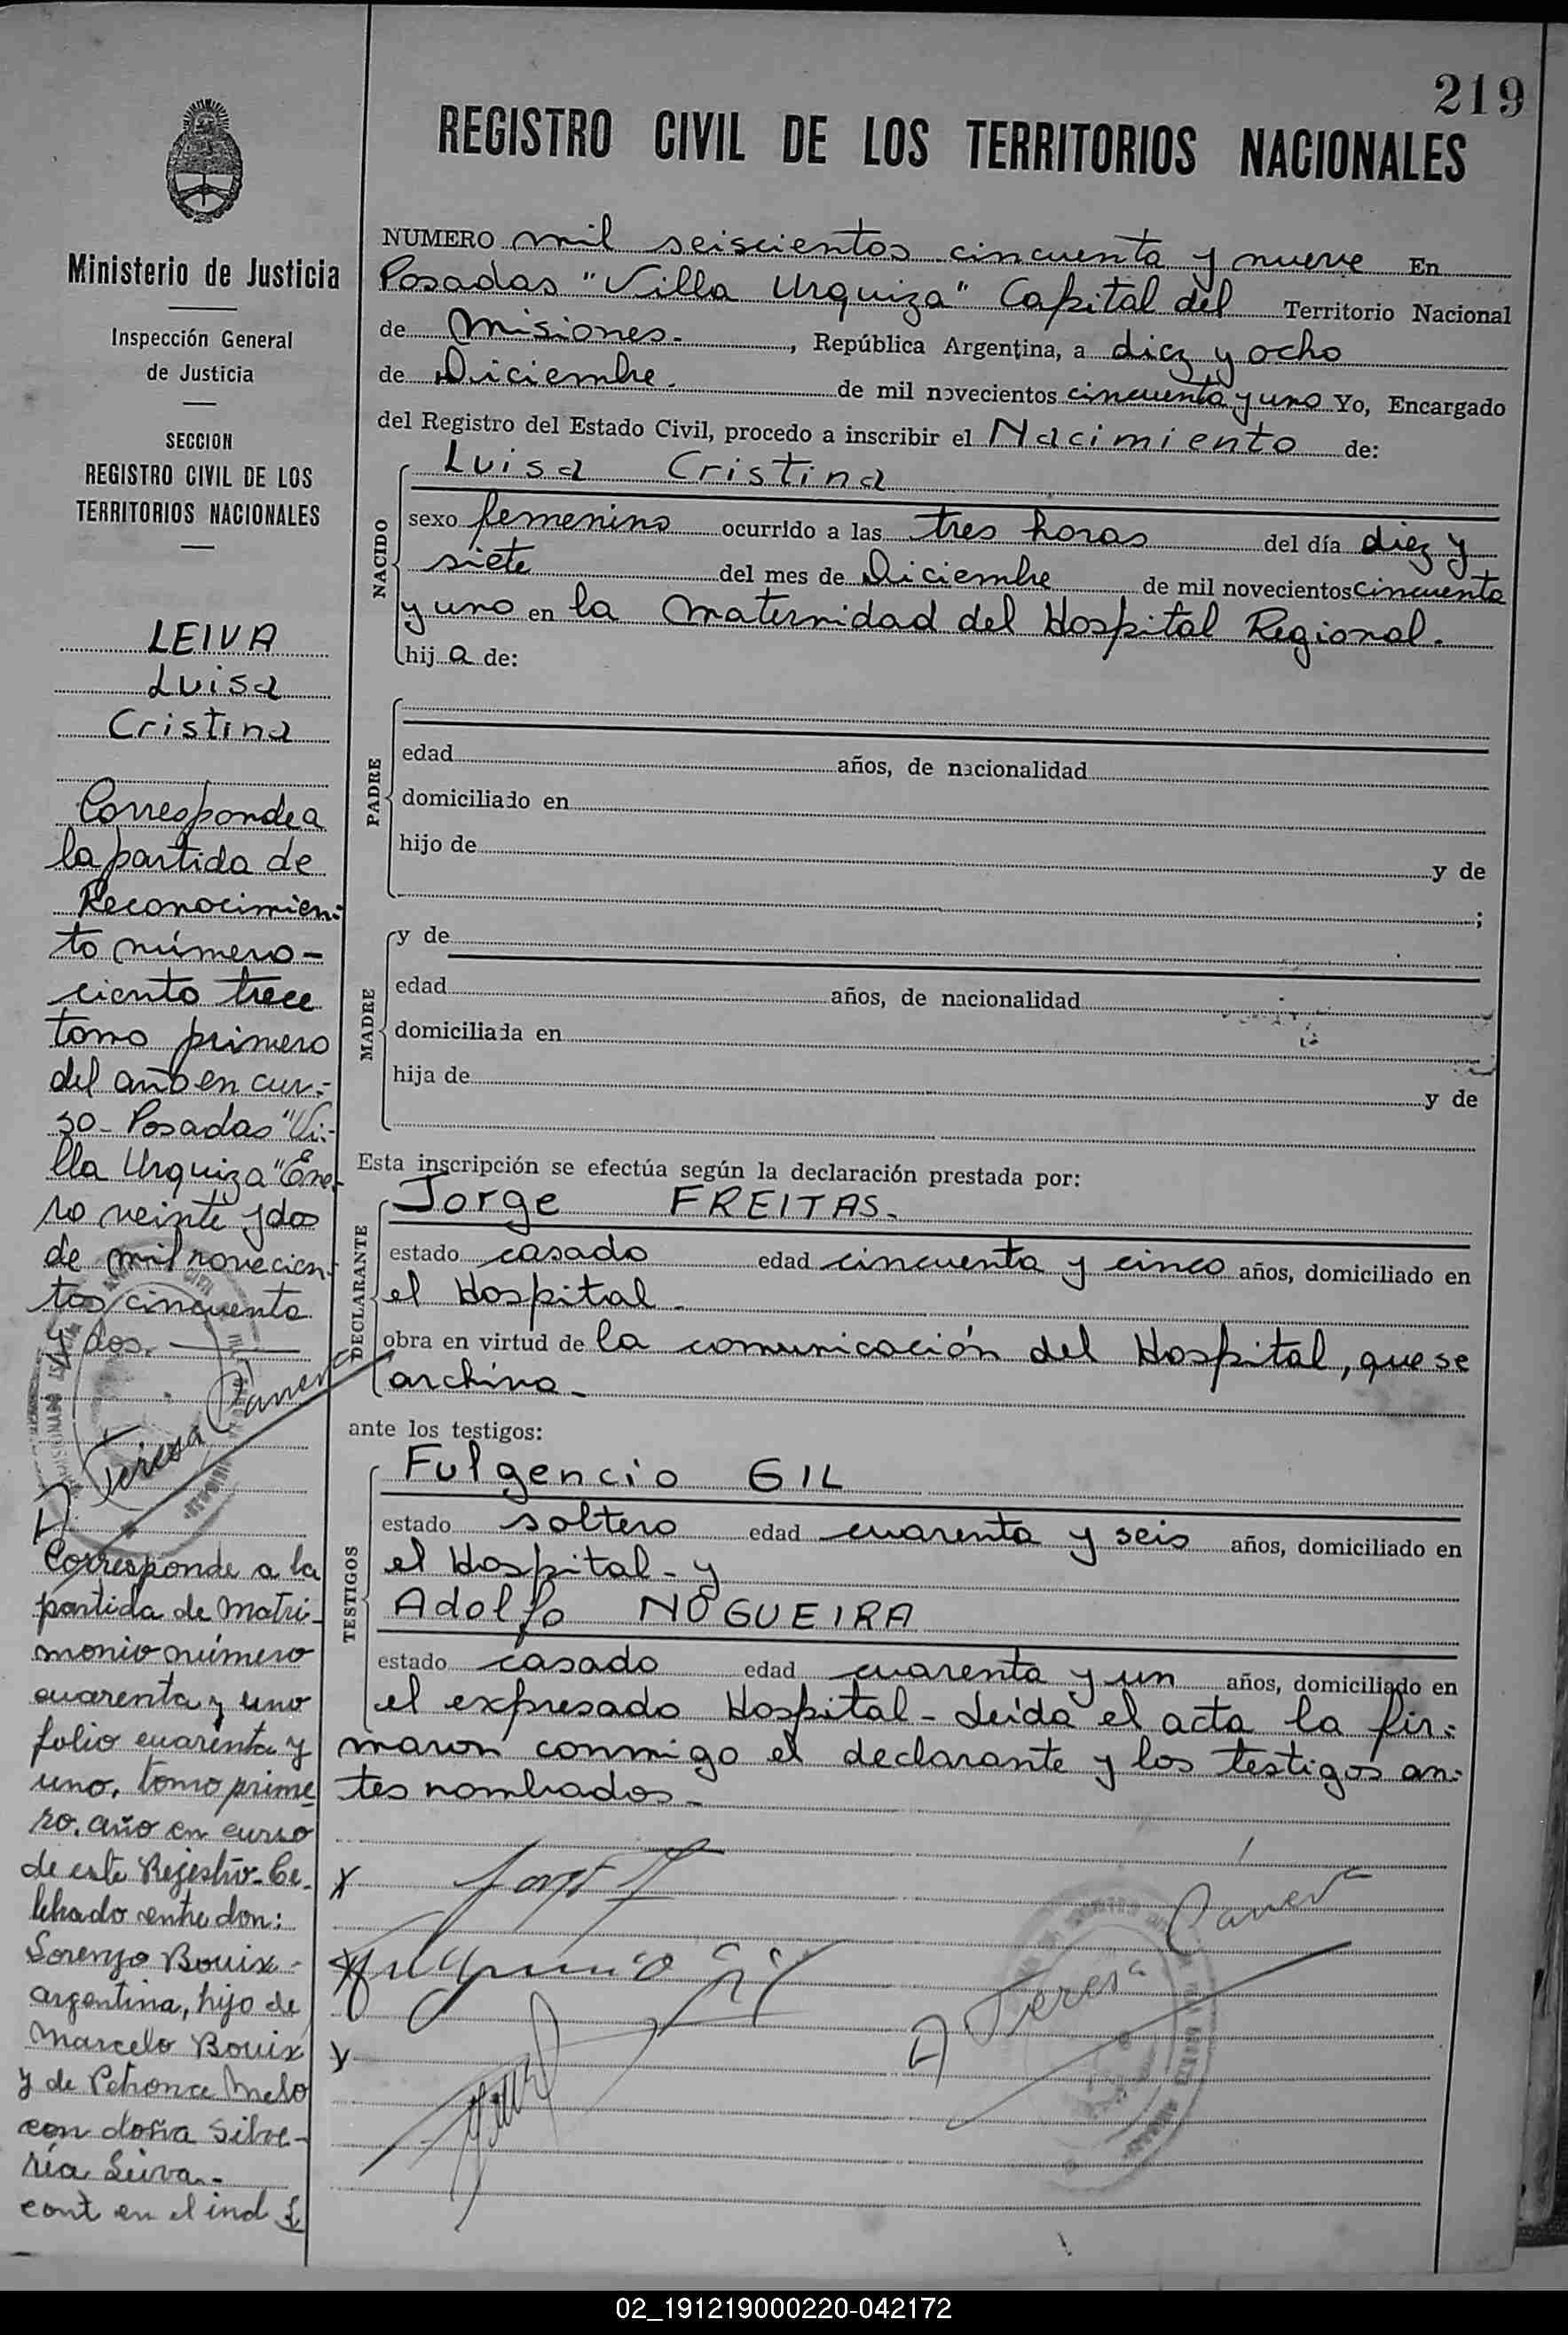 219
REGISTRO CIVIL DE LOS TERRITORIOS NACIONALES
Ministerio de Justicia
Inspección General
de Justicia
SECCION
REGISTRO CIVIL DE LOS
TERRITORIOS NACIONALES
LEIVA
Luisa
Cristina
Corresponde a
la partida de
Reconocimien-
to número-
ciento trece
tomo primero
del año en cur-
so- Posadas "Vi-
lla Urquiza" Ene-
ro veinte y dos
de mil novecien-
tos cincuenta
y dos.
Teresa
Corresponde a la
partida de Matri-
monio número
cuarenta y uno
folio cuarenta y
uno. tomo prime-
ro. año en curso
de este Rejistro- Ce-
lebrado entre don:
Lorenzo Bouix-
argentina, hijo de
Marcelo Bouix
y de Petrona Melo
con doña Silve-
ria Leiva.-
cont en el ind
NUMERO mil seiscientos cincuenta y nueve En
Posadas "Villa Urquiza" Capital del Territorio Nacional
de Misiones.- , República Argentina, a diez y ocho
de Diciembre. de mil novecientos cincuenta y uno Yo, Encargado
del Registro del Estado Civil, procedo a inscribir el Nacimiento de:
Luisa Cristina
NACIDO
sexo femenino ocurrido a las tres horas del día diez y
siete del mes de Diciembre de mil novecientos cincuenta
y uno en la Maternidad del Hospital Regional.
hij a de:
PADRE
edad años, de nacionalidad
domiciliado en
hijo de y de
;
MADRE
y de
edad años, de nacionalidad
domiciliada en
hija de y de
Esta inscripción se efectúa según la declaración prestada por:
Jorge FREITAS.
DECLARANTE
estado casado edad cincuenta y cinco años, domiciliado en
el Hospital-
obra en virtud de la comunicación del Hospital, que se
archiva-
ante los testigos:
Fulgencio GIL
TESTIGOS
estado soltero edad cuarenta y seis años, domiciliado en
el Hospital- y
Adolfo NOGUEIRA
estado casado edad cuarenta y un años, domiciliado en
el expresado Hospital- Leída el acta la fir-
maron conmigo el declarante y los testigos an-
tes nombrados-
Teresa
02_191219000220-042172